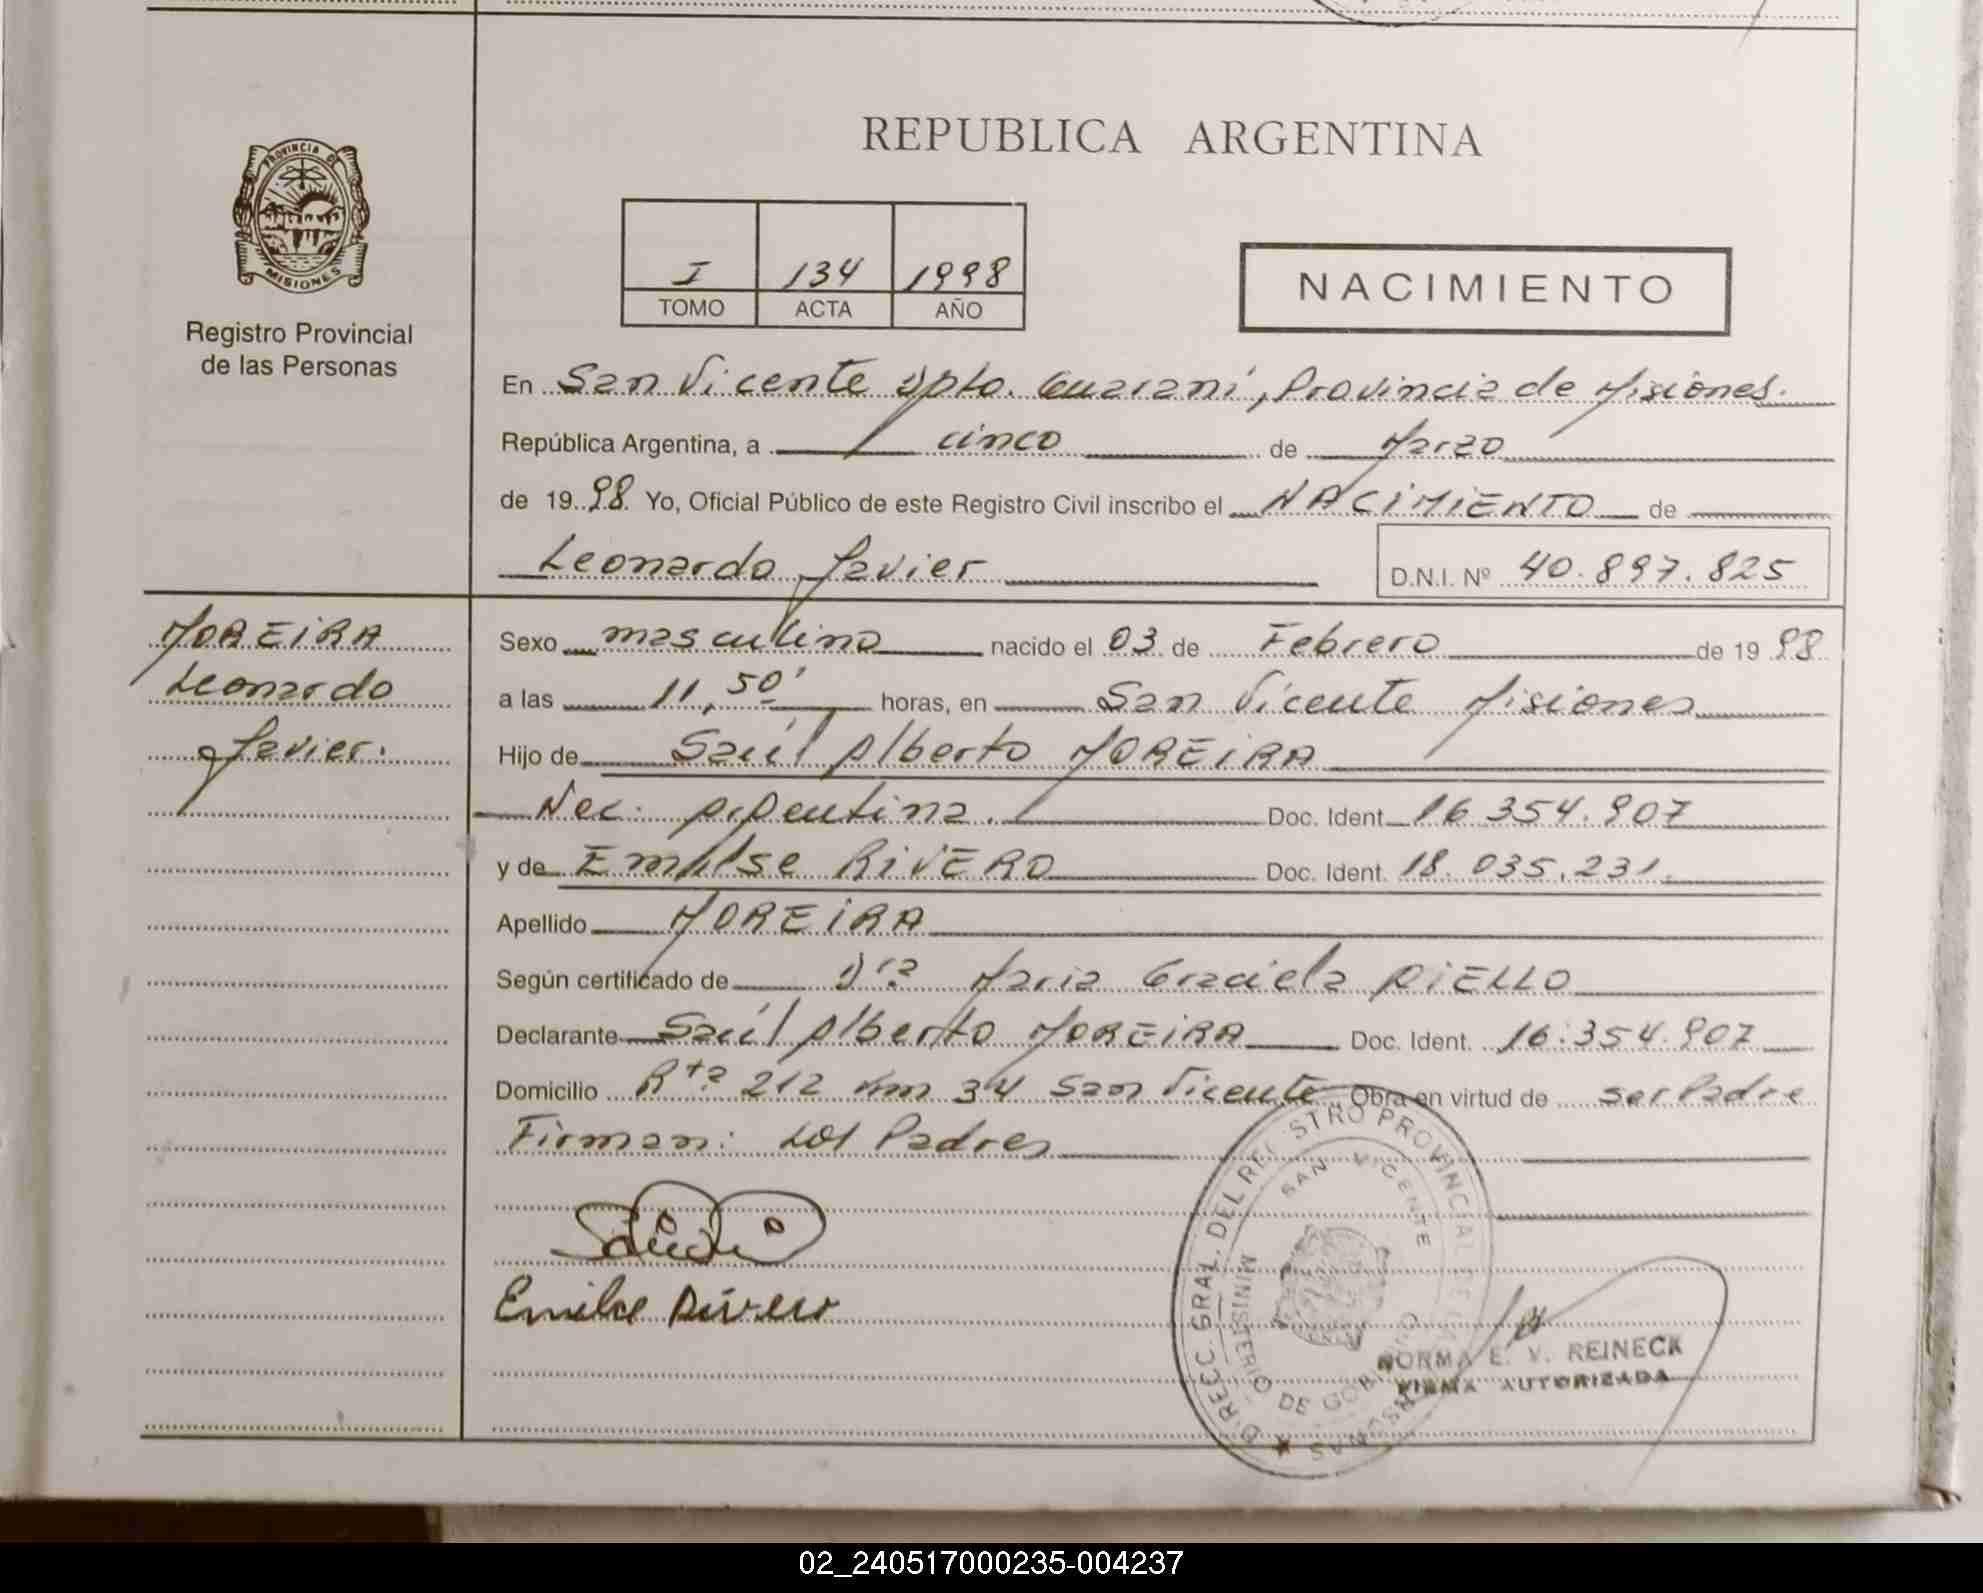 REPUBLICA ARGENTINA
PROVINCIA DE
MISIONES
Registro Provincial
de las Personas
I 134 1998
TOMO ACTA AÑO
NACIMIENTO
En San Vicente Dpto. Guaraní, Provincia de Misiones.
República Argentina, a cinco de Marzo
de 1998 Yo, Oficial Público de este Registro Civil inscribo el NACIMIENTO de
Leonardo Javier D.N.I. Nº 40.897.825
MOREIRA
Leonardo
Javier.
Sexo masculino nacido el 03 de Febrero de 1998
a las 11,50' horas, en San Vicente Misiones
Hijo de Saúl Alberto MOREIRA
Nac. Argentina. Doc. Ident. 16.354.907
y de Emilse RIVERO Doc. Ident. 18.035.231.
Apellido MOREIRA
Según certificado de Dra Maria Graciela
Declarante Saúl Alberto MOREIRA Doc. Ident. 16.354.907
Domicilio Rta 212 Km 34 San Vicente Obra en virtud de ser Padre
Firman: Los Padres
Emilse Rivero
DIRECC. GRAL. DEL REGISTRO PROVINCIAL DE LAS PERSONAS
SAN VICENTE
MINISTERIO DE GOBIERNO
NORMA E. V. REINECK
FIRMA AUTORIZADA
02_240517000235-004237